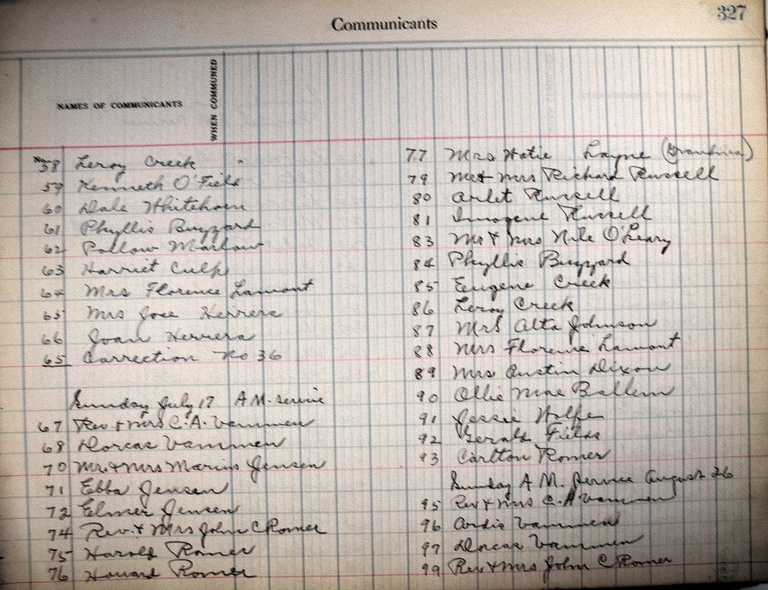 327
Communicants
NAMES OF COMMUNICANTS
WHEN COMMUNED
No 58 Leroy Creek
59 Kenneth O'Field
60 Dale Whitehorn
61 Phyllis Buzzard
62 Marlow
63 Harriet Culp
64 Mrs Florence Lamont
65 Mrs Jose Herrera
66 Joan Herrera
65 Correction No 36
Sunday July 17 A.M. service
67 Rev & Mrs C.A. Vammen
68 Dorcas Vammen
70 Mr & Mrs Marius Jensen
71 Ebba Jensen
72 Elmer Jensen
74 Rev. & Mrs John C Romer
75 Harold Romer
76 Howard Romer
77 Mrs Hatie Layne (Grandma)
79 Mr & Mrs Richard Russell
80 Arlet Russell
81 Imogene Russell
83 Mr & Mrs Nile O'Leary
84 Phyllis Buzzard
85 Eugene Creek
86 Leroy Creek
87 Mrs Alta Johnson
88 Mrs Florence Lamont
89 Mrs Austin Dixon
90 Ollie Mae Ballem
91 Jessie Wolfe
92 Gerald Fields
93 Carlton Romer
Sunday A.M. Service August 26
95 Rev & Mrs C.A Vammen
96 Ardis Vammen
97 Dorcas Vammen
99 Rev & Mrs John C Romer